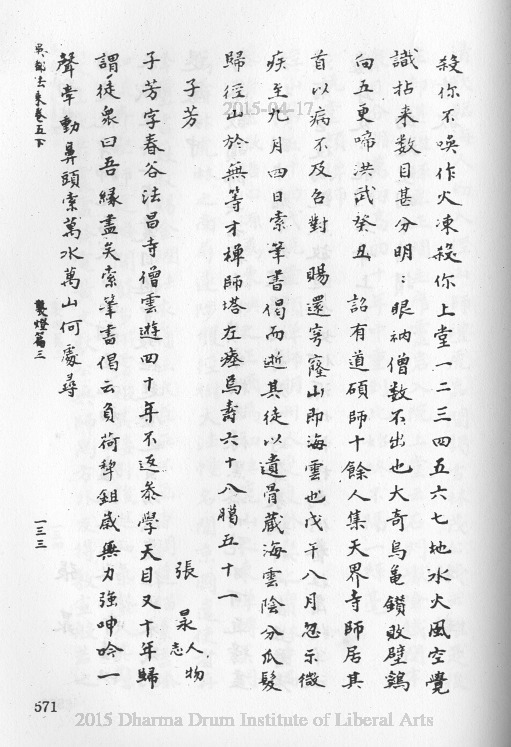 殺你不喚作火凍殺你上堂一二三四五六七地水火風空覺
識拈来数目甚分明眼衲僧数不出也大奇烏亀鑽敗壁鷄
向五更啼洪武癸丑 詔有道碩師十餘人集天界寺師居其
首以病不及召對 賜還穹窿山即海雲也戊午八月忽示微
疾至九月四日索筆書偈而逝其徒以遺骨蔵海雲陰分瓜髮
歸徑山於無等才禅師塔左瘞焉壽六十八臘五十一
子芳
張㫤人物志
子芳字春谷法昌寺僧雲遊四十年不返叅學天目又十年歸
謂徒衆曰吾緣盡矣索筆書偈云負荷犂鉏歲無力強呻吟一
聲牽動鼻頭索萬水萬山何處尋
吳都法乗卷五下 䕫燈篇三 一三三
571
2015-04-17
2015 Dharma Drum Institute of Liberal Arts